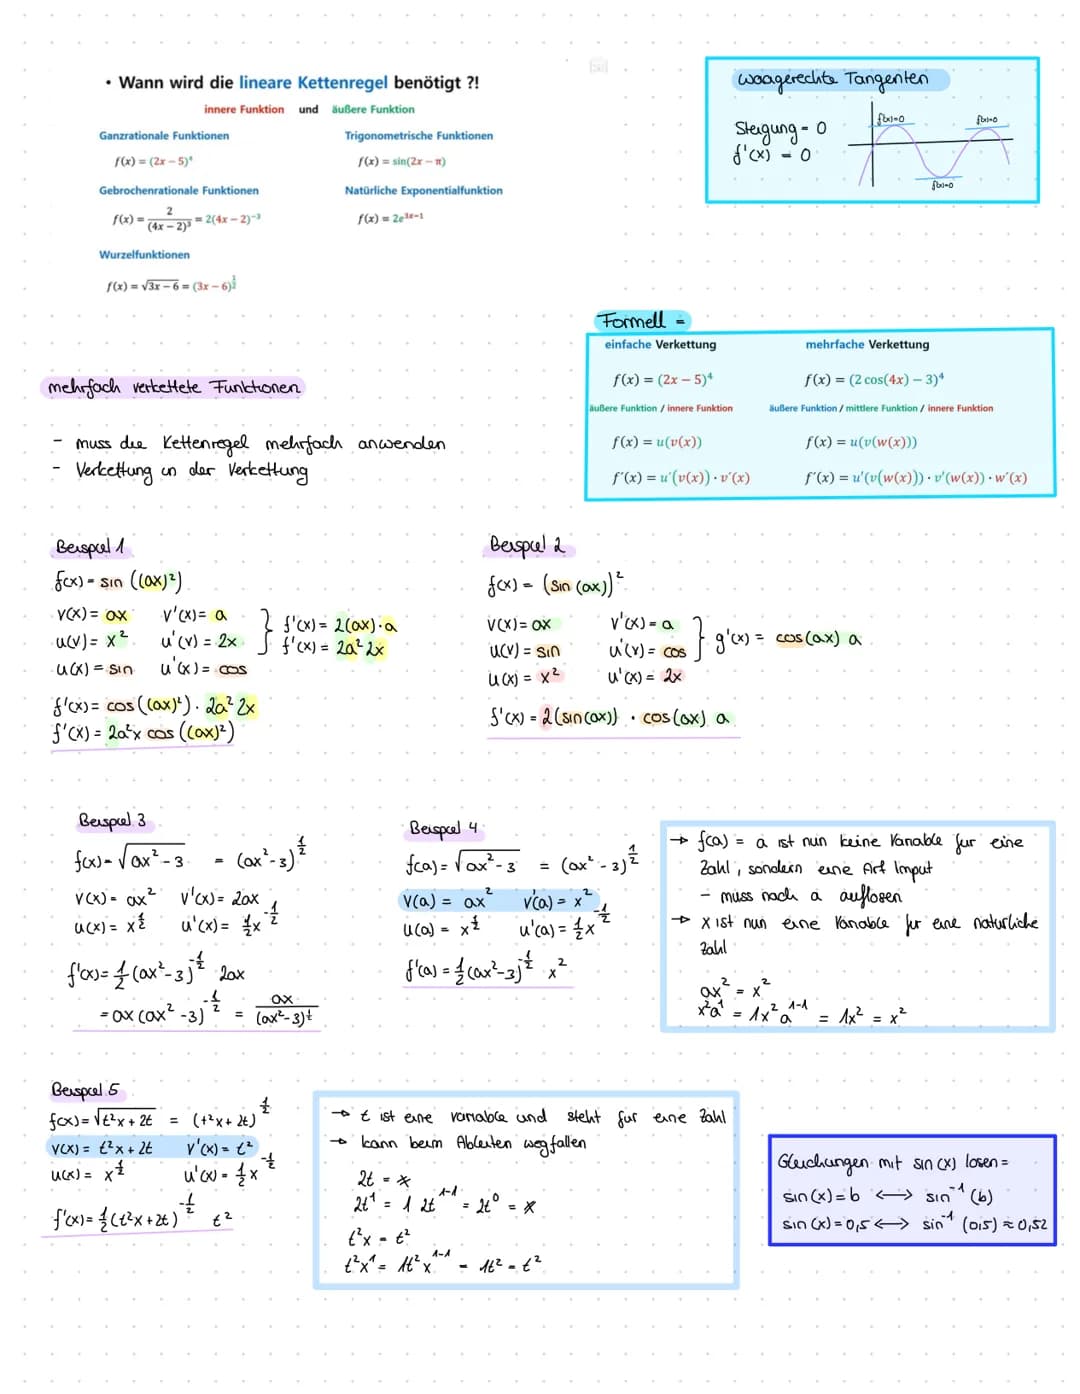 • Wann wird die lineare Kettenregel benötigt ?!
innere Funktion und äußere Funktion
Ganzrationale Funktionen
f(x) = (2x − 5)⁴
Gebrochenrationale Funktionen
f(x) = 2/(4x − 2)³ = 2(4x − 2)⁻³
Wurzelfunktionen
f(x) = √3x − 6 = (3x − 6)^½
Trigonometrische Funktionen
f(x) = sin(2x − π)
Natürliche Exponentialfunktion
f(x) = 2e³ˣ⁻¹
waagerechte Tangenten
Steigung = 0
f'(x) = 0
f(x)=0
f(x)=0
f(x)=0
Formell =
einfache Verkettung
f(x) = (2x − 5)⁴
äußere Funktion / innere Funktion
f(x) = u(v(x))
f´(x) = u´(v(x)) · v´(x)
mehrfache Verkettung
f(x) = (2 cos(4x) − 3)⁴
äußere Funktion / mittlere Funktion / innere Funktion
f(x) = u(v(w(x)))
f´(x) = u'(v(w(x))) · v'(w(x)) · w´(x)
mehrfach verkettete Funktionen
- muss die Kettenregel mehrfach anwenden
- Verkettung in der Verkettung
Beispiel 1
f(x) = sin ((ax)²)
v(x) = ax v'(x) = a
u(v) = x² u'(v) = 2x
u(x) = sin u'(x) = cos
} f'(x) = 2(ax)·a
f'(x) = 2a² 2x
f'(x) = cos((ax)²) · 2a² 2x
f'(x) = 2a²x cos ((ax)²)
Beispiel 2
f(x) = (sin (ax))²
v(x) = ax v'(x) = a
u(v) = sin u'(v) = cos
u(x) = x² u'(x) = 2x
} g'(x) = cos(ax) a
f'(x) = 2(sin(ax)) · cos(ax) a
Beispiel 3
f(x) = √ax² - 3 = (ax² - 3)^½
v(x) = ax² v'(x) = 2ax
u(x) = x^½ u'(x) = ½x^-½
f'(x) = ½ (ax² - 3)^-½ 2ax
= ax (ax² - 3)^-½ = ax/(ax² - 3)^½
Beispiel 4
f(a) = √ax² - 3 = (ax² - 3)^½
v(a) = ax² v'(a) = x²
u(a) = x^½ u'(a) = ½x^-½
f'(a) = ½(ax² - 3)^-½ x²
→ f(a) = a ist nun keine Variable fur eine
Zahl, sondern eine Art Imput
- muss nach a auflosen
→ x ist nun eine Variable fur eine naturliche
Zahl
ax² = x²
x²a¹ = 1x² a¹⁻¹ = 1x² = x²
Beispiel 5
f(x) = √t²x + 2t = (t²x + 2t)^½
v(x) = t²x + 2t v'(x) = t²
u(x) = x^½ u'(x) = ½x^-½
f'(x) = ½(t²x + 2t)^-½ t²
→ t ist eine variable und steht fur eine Zahl
→ kann beim Ableiten wegfallen
2t = x
2t¹ = 1 2t¹⁻¹ = 2t⁰ = x
t²x = t²
t²x¹ = 1t² x¹⁻¹ = 1t² = t²
Gleichungen mit sin (x) losen =
sin(x) = b ⟷ sin⁻¹ (b)
sin (x) = 0,5 ⟷ sin⁻¹ (0,5) ≈ 0,52